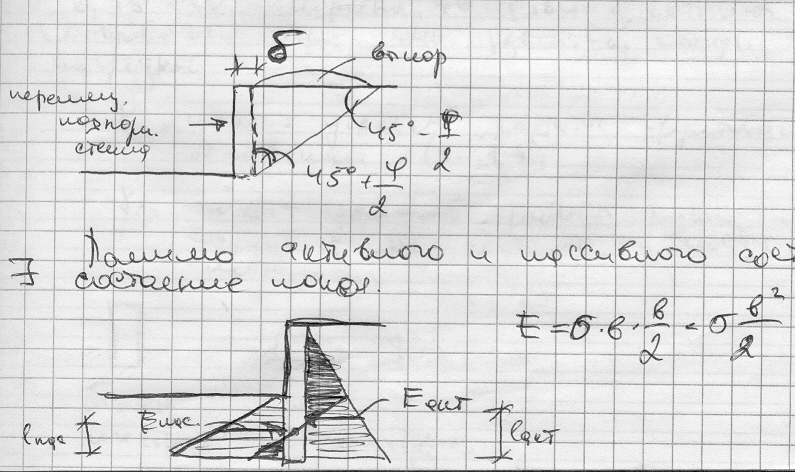 δ
выпор
перемещ.
подпорн.
стенка
45° - φ/2
45° + φ/2
Помимо активного и пассивного сост
∃ состояние покоя.
E = σ·в·в/2 = σ в²/2
Eпас.
Eакт
lпас
lакт